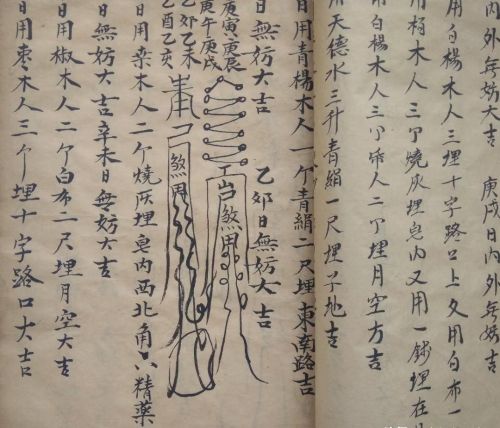 内外年妨大吉 庚戌日内外年妨吉
用白楊木人三埋十字路口上又用白布一
用柏木人三个燒灰埋皂内又用一錢埋在
用白楊木人三个乖人二个埋月空方吉
用天德水三升青絹一尺埋子地吉
日用青楊木人一个青絹二尺埋東南路吉
日無妨大吉 乙郊日無妨大吉
庚寅庚辰
庚午庚戌
乙郊乙未
乙酉乙亥
煞用
煞用
日用杂木人二个燒灰埋皂内西北角六精藥
日無妨大吉辛未日無妨大吉
日用椒木人二个白布二尺埋月空大吉
日用棗木人三个埋十字路口大吉